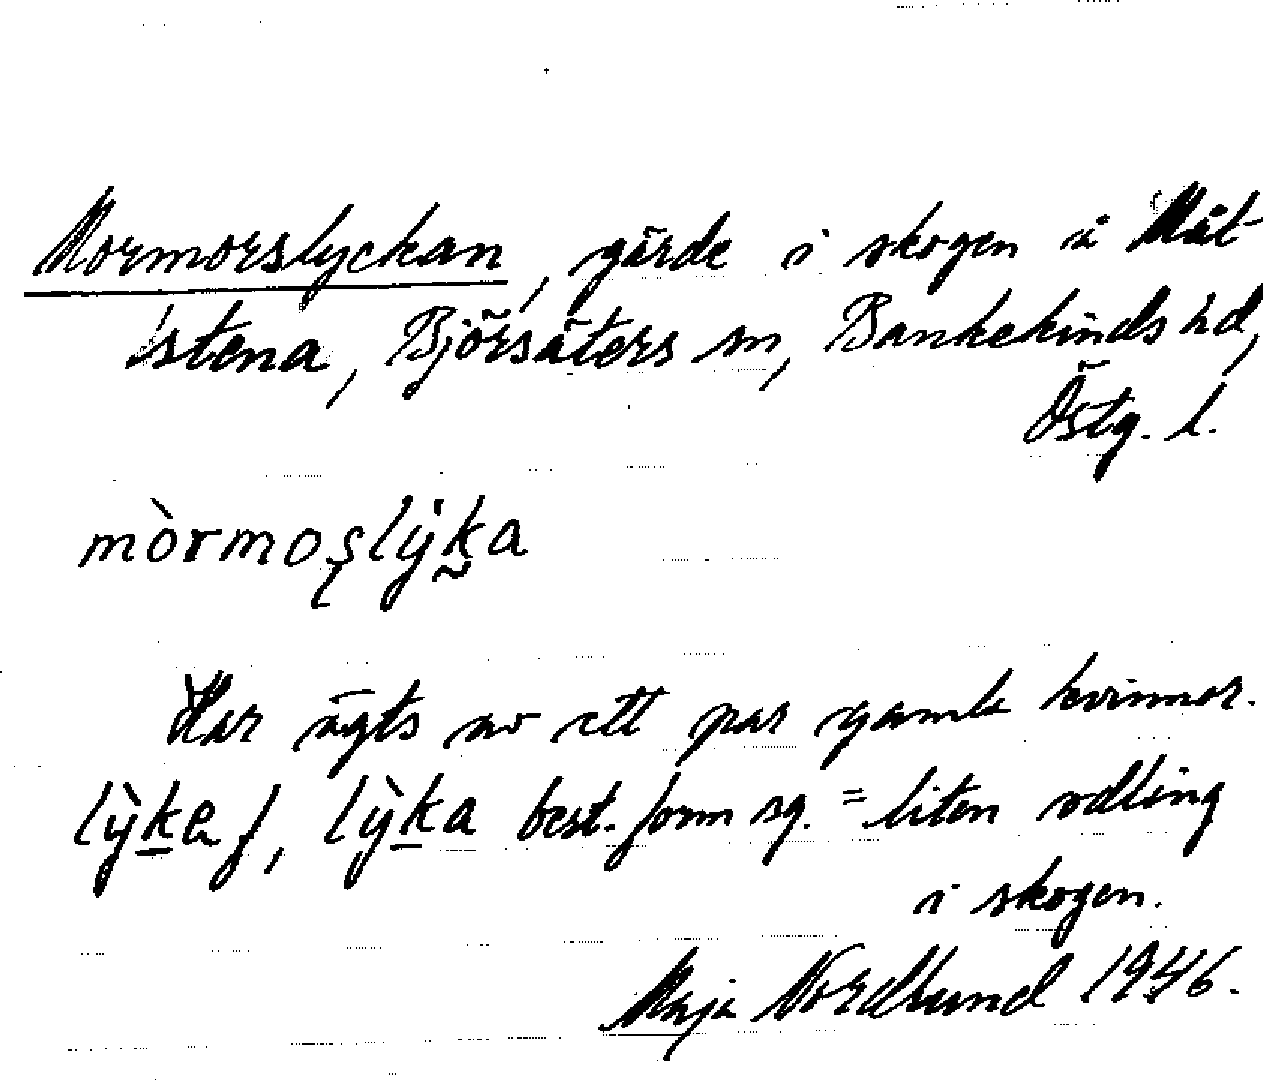 Mormorslyckan, gärde i skogen å Måt-
istena, Björsäters sn, Bankekinds hd,
Östg. l.
mòrmoʂlẏk̰a
Har ägts av ett par gamla kvinnor.
lỳḵe f, lỳḵa best. form sg. = liten odling
i skogen.
Maja Nordlund 1946.